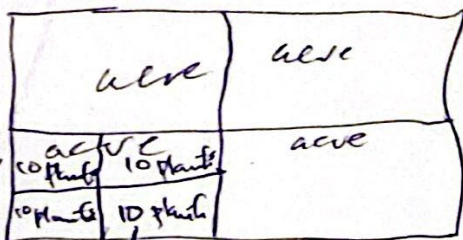 acre acre
acre acre
10 plants 10 plants
10 plants 10 plants